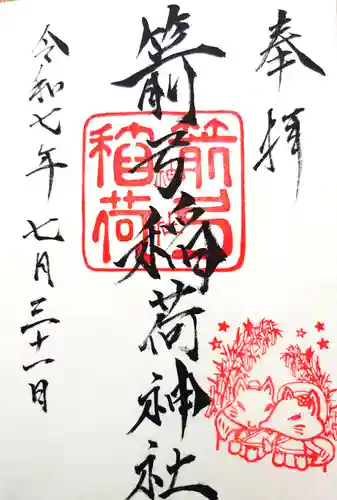 奉拝
箭弓稲荷神社
箭弓
稲荷
令和七年 七月三十一日